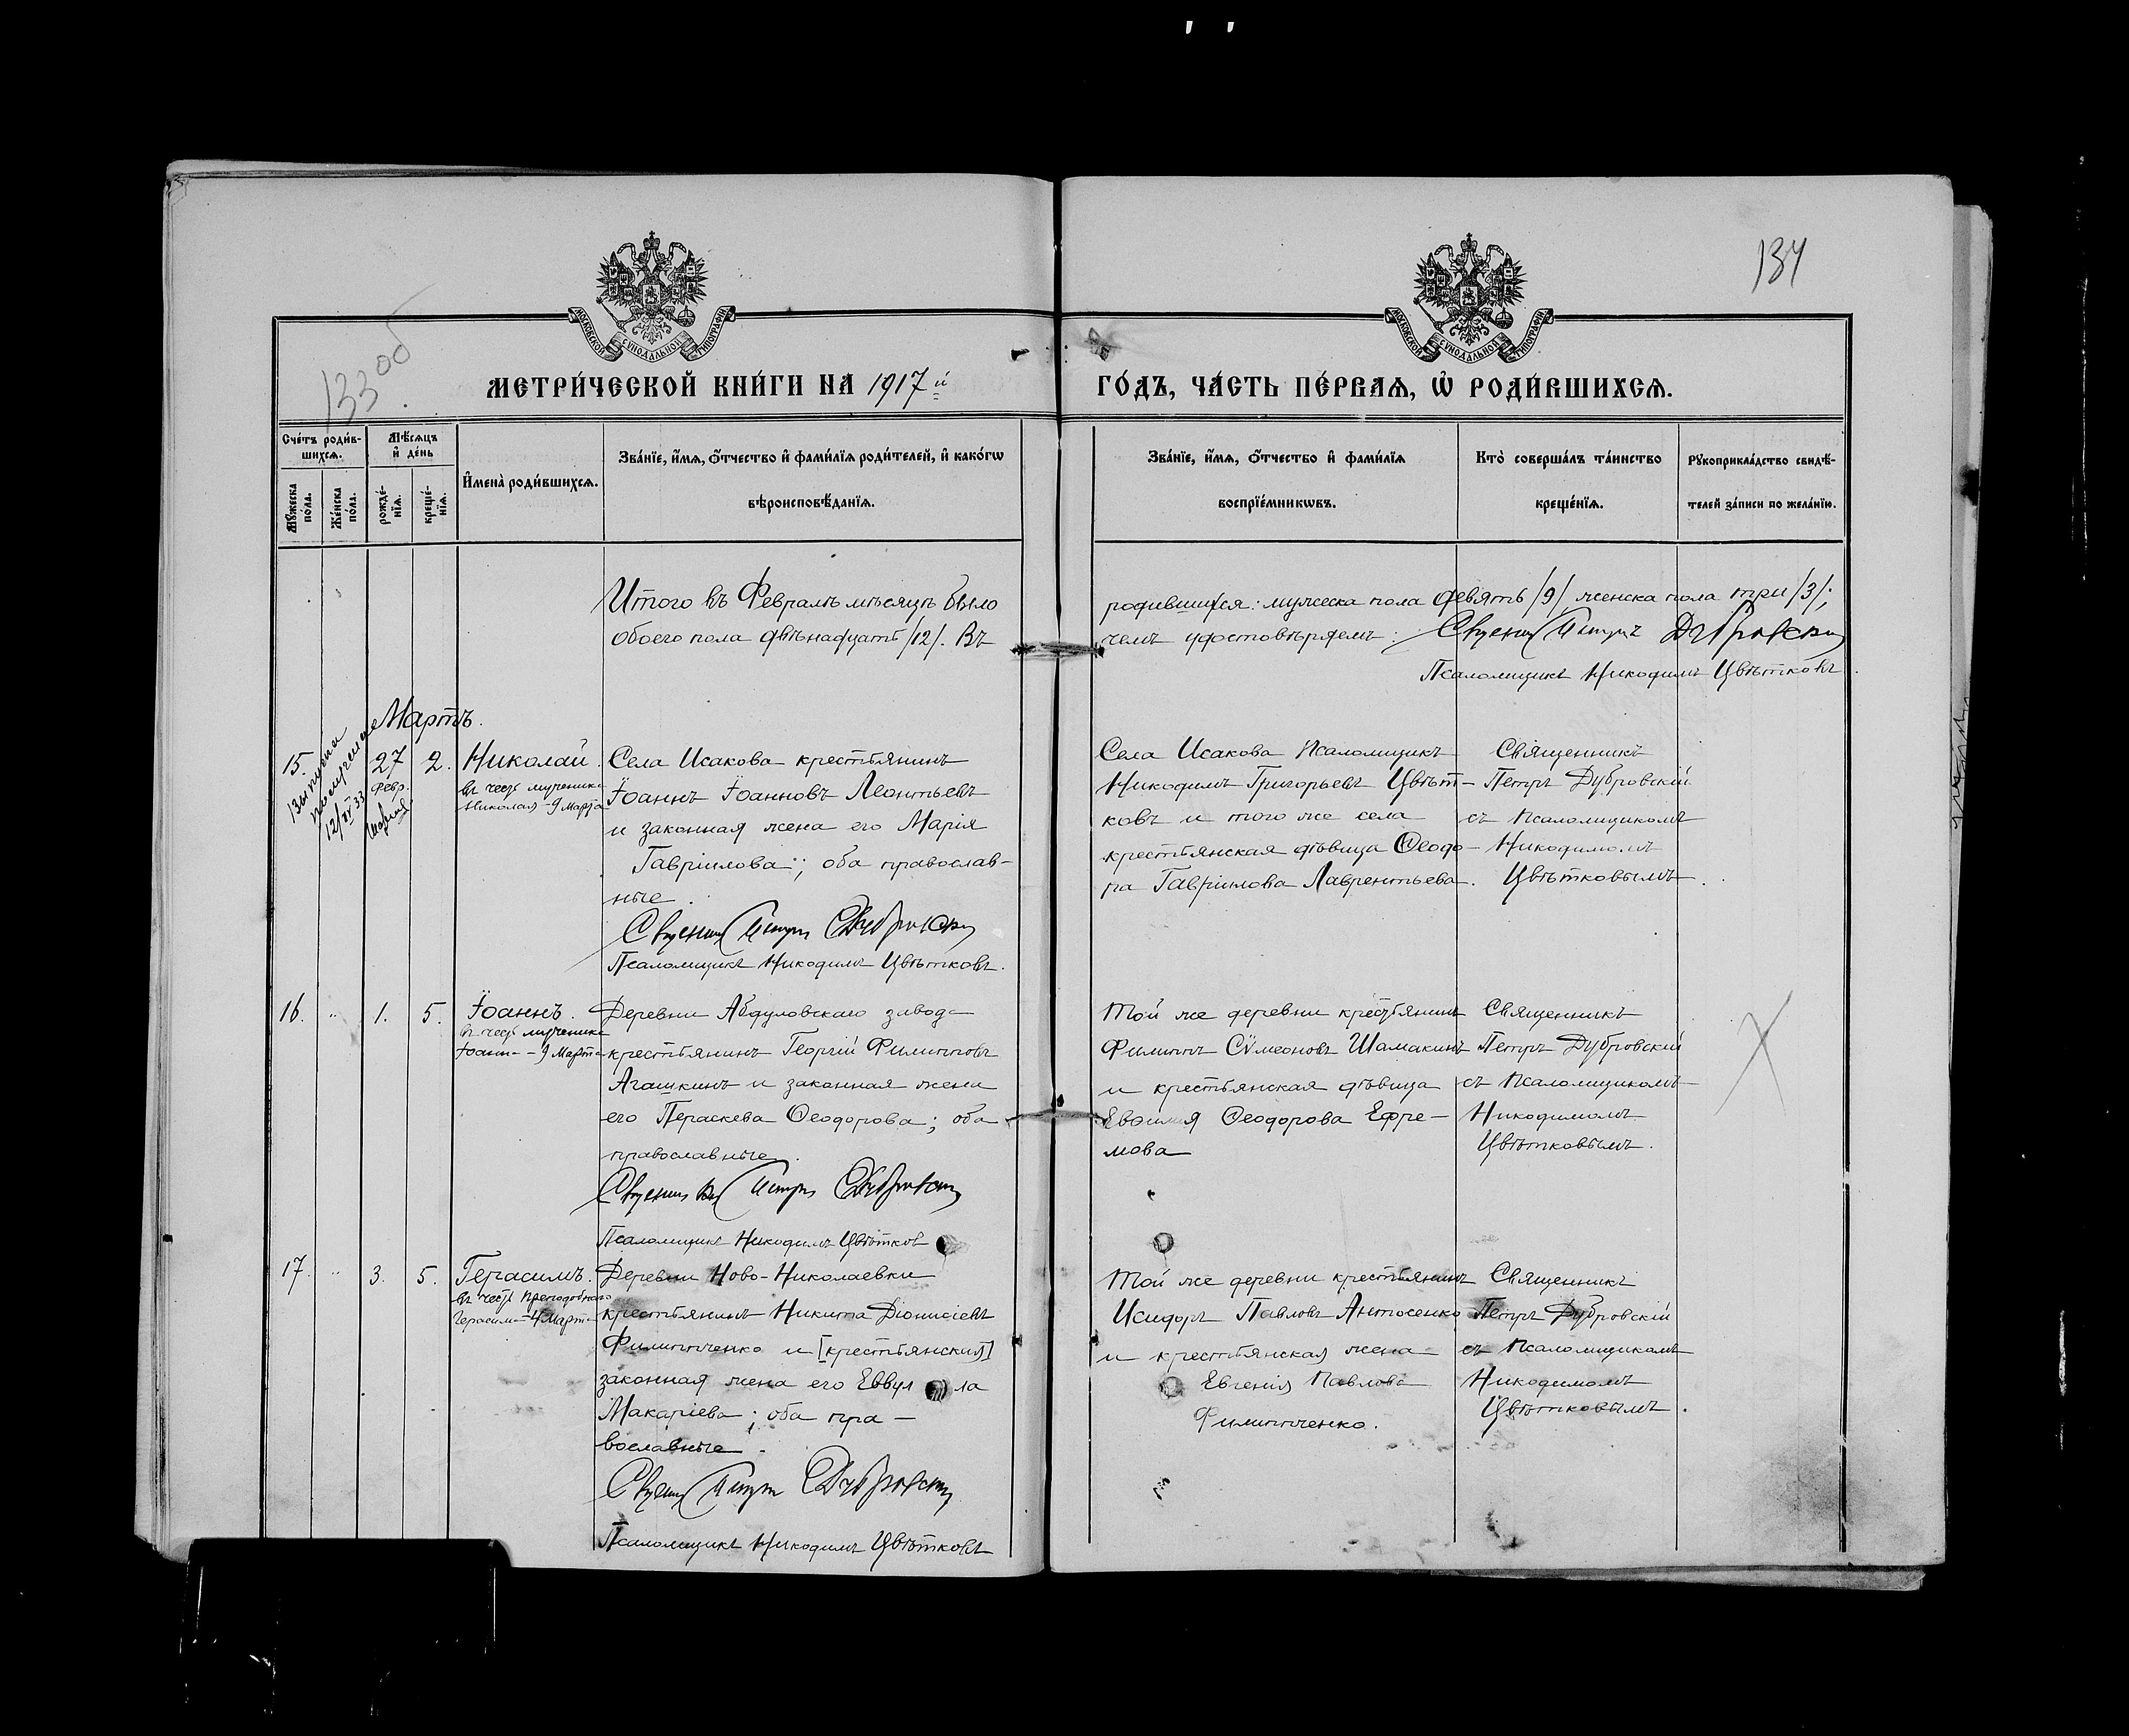 134
133 об.
МОСКОВСКОЙ СѴНОДАЛЬНОЙ ТИПОГРАФІИ
МОСКОВСКОЙ СѴНОДАЛЬНОЙ ТИПОГРАФІИ
МЕТРИ́ЧЕСКОЙ КНИ́ГИ НА 1917й
ГО́ДЪ, ЧА́СТЬ ПЕ́РВАѦ, Ѡ҆ РОДИ́ВШИХСѦ.
Сче́тъ роди́в-
шихсѧ.
Мѣ́сѧцъ
и҆ де́нь
Мꙋ́жеска по́ла.
Же́нска по́ла.
рожде́-
нїѧ.
креще́-
нїѧ.
И҆мена̀ роди́вшихсѧ.
Зва́нїе, и҆́мѧ, ѻ҆́тчество и҆ фами́лїѧ роди́телей, и҆ како́гѡ
вѣроисповѣ́данїѧ.
Зва́нїе, и҆́мѧ, ѻ҆́тчество и҆ фами́лїѧ
воспрїе́мникѡвъ.
Кто̀ соверша́лъ та́инство
креще́нїѧ.
Рꙋкоприкла́дство свидѣ́-
телей за́писи по жела́нїю.
Итого въ Февралѣ мѣсяцѣ было
обоего пола двѣнадцать /12/. Въ
родившихся: мужеска пола девять /9/ женска пола три /3/;
чемъ удостовѣряемъ: Священникъ Петръ Дубровскій
Псаломщикъ Никодимъ Цвѣтковъ
Мартъ.
15. 27 Февр. 2. Николай.
въ честь мученика
Николая – 9 Марта
12/VI 33
Села Исакова крестьянинъ
Іоаннъ Іоанновъ Леонтьевъ
и законная жена его Марія
Гавріилова; оба православ-
ные.
Священникъ Петръ Дубровскій
Псаломщикъ Никодимъ Цвѣтковъ.
Села Исакова Псаломщикъ
Никодимъ Григорьевъ Цвѣт-
ковъ и того же села
крестьянская дѣвица Ѳеодо-
ра Гавріилова Лаврентьева.
Священникъ
Петръ Дубровскій
съ Псаломщикомъ
Никодимомъ
Цвѣтковымъ.
16. " 1. 5. Іоаннъ.
въ честь мученика
Іоанна – 9 Марта
Деревни Абдуловскаго завода
крестьянинъ Георгій Филипповъ
Агашкинъ и законная жена
его Пераскева Ѳеодорова; оба
православные.
Священникъ Петръ Дубровскій
Псаломщикъ Никодимъ Цвѣтков
Той же деревни крестьянинъ
Филиппъ Сѵмеоновъ Шамакинъ
и крестьянская дѣвица
Евѳимія Ѳеодорова Ефре-
мова
Священникъ
Петръ Дубровскій
съ Псаломщикомъ
Никодимомъ
Цвѣтковымъ.
17. " 3. 5. Герасимъ.
въ честь преподобнаго
Герасима – 4 Марта
Деревни Ново-Николаевки
крестьянинъ Никита Діонисіевъ
Филипченко и [крестьянская]
законная жена его Еввул ла
Макаріева; оба пра-
вославные.
Священникъ Петръ Дубровскій
Псаломщикъ Никодимъ Цвѣтковъ
Той же деревни крестьянинъ
Исидоръ Павловъ Антосенко
и крестьянская жена
Евгенія Павлова
Филипченко.
Священникъ
Петръ Дубровскій
съ Псаломщикомъ
Никодимомъ
Цвѣтковымъ.